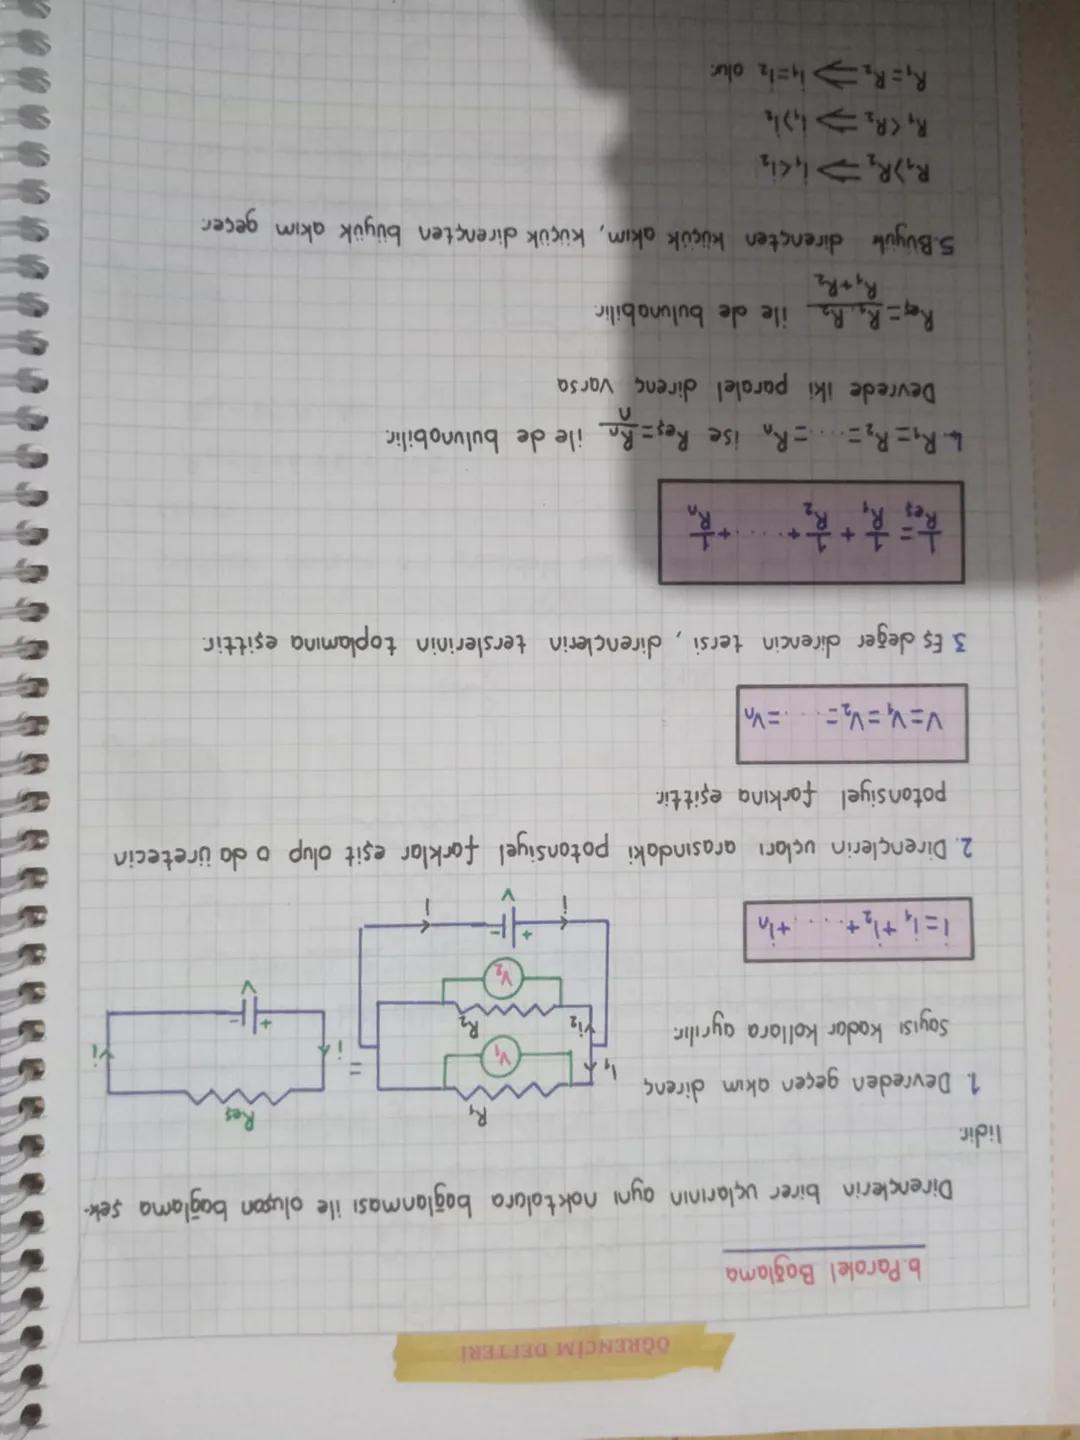 ÖĞRENCİM DEFTERİ
b.Paralel Bağlama
Dirençlerin birer uçlarının aynı noktalara bağlanması ile oluşan bağlama şek-
lidir.
1. Devreden geçen akım direnç
sayısı kadar kollara ayrılır.
i=i₁+i₂+.....+iₙ
R₁
V₁
i₁
R₂
V₂
i₂
+ -
i
V
i
=
Reş
i
i
+ -
V
2. Dirençlerin uçları arasındaki potansiyel farklar eşit olup o da üretecin
potansiyel farkına eşittir.
V=V₁=V₂=.....=Vₙ
3. Eş değer direncin tersi, dirençlerin terslerinin toplamına eşittir.
1/Reş = 1/R₁ + 1/R₂ +.....+ 1/Rₙ
4. R₁=R₂=.....=Rₙ ise Reş=Rₙ/n ile de bulunabilir.
Devrede iki paralel direnç varsa
Reş=R₁.R₂/R₁+R₂ ile de bulunabilir.
5.Büyük dirençten küçük akım, küçük dirençten büyük akım geçer.
R₁>R₂ ⇒ i₁<i₂
R₁<R₂ ⇒ i₁>i₂
R₁=R₂ ⇒ i₁=i₂ olur.